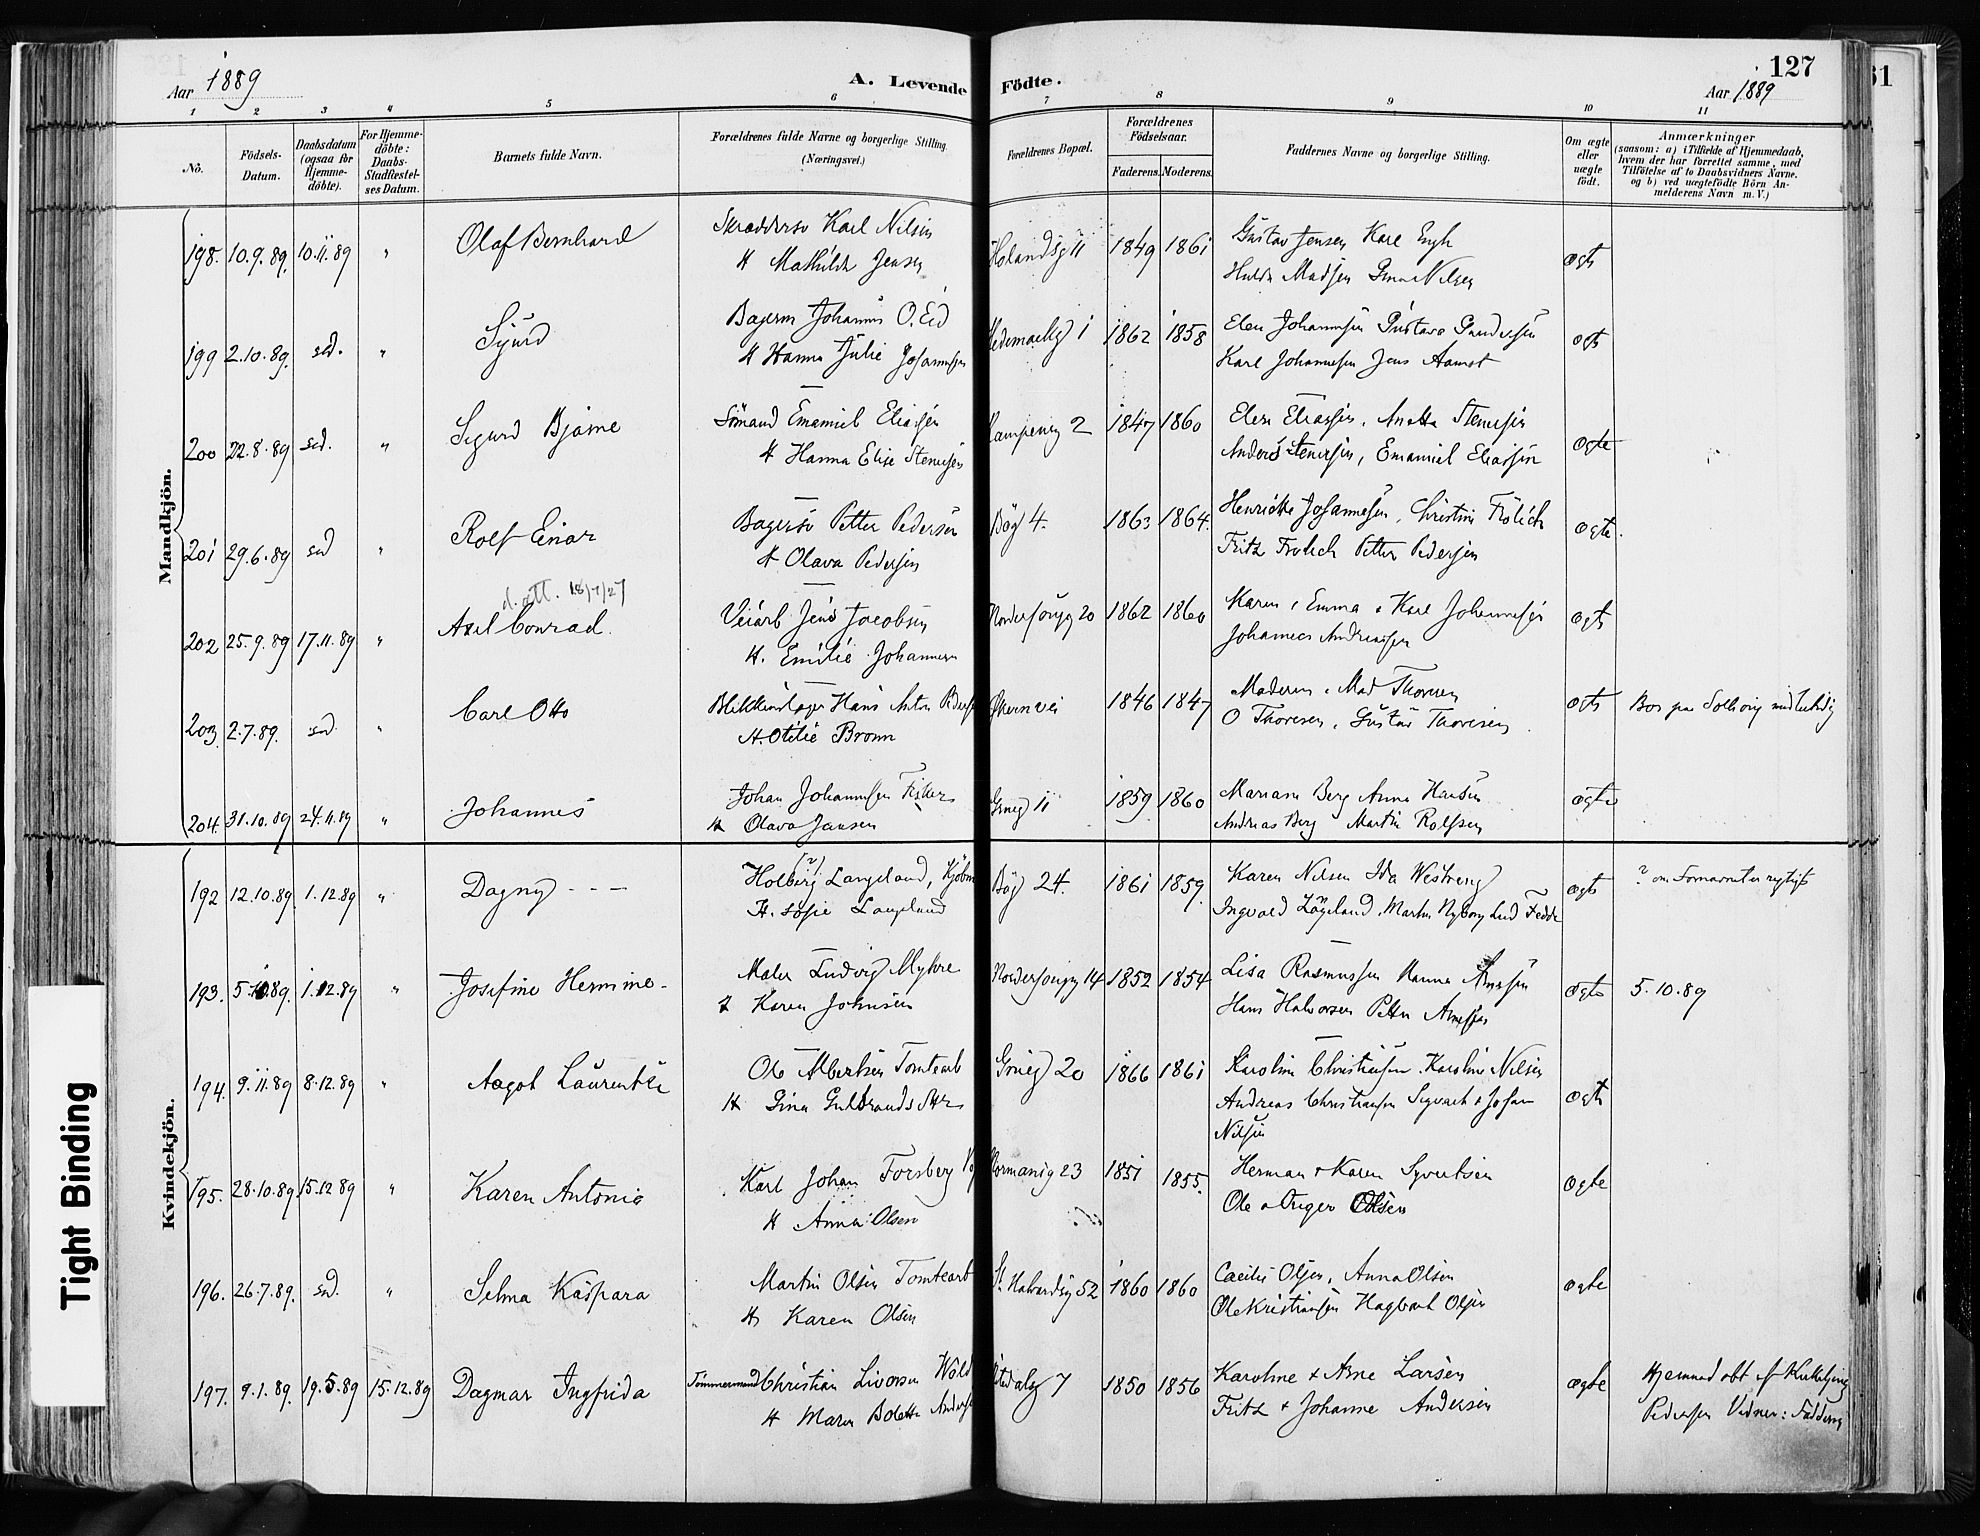 Aar 1889
A. Levende Födte.
127
Aar 1889
61
1 2 3 4 5 6 7 8 9 10 11
No.
Födsels-Datum.
Daabsdatum (ogsaa för Hjemme-döbte).
For Hjemme-döbte: Daabs-Stadfæstel-ses Datum.
Barnets fulde Navn.
Forældrenes fulde Navne og borgerlige Stilling. (Næringsvei.)
Forældrenes Bopæl.
Forældrenes Födselsaar.
Faderens. Moderens.
Faddernes Navne og borgerlige Stilling.
Om ægte eller uægte födt.
Anmærkninger
(saasom: a) i Tilfælde af Hjemmedaab, hvem der har forrettet samme, med Tilföielse af to Daabsvidners Navne. og b) ved uægtefödte Börn An-melderens Navn m. V.)
Mandkjön.
198. 10.9.89. 10.11.89 " Olaf Bernhard Skræddersv Karl Nilsen 1849 1861 Gustav Jensen Karl Engh ægte
H Mathilde Jensen Hulda Madsen Nilsen
199 2.10.89. sd. " Sjurd Bagerm Johannes O. Eid Hedemarksg 1 1862 1858 Elen Johannesen Gustava Gundersen ægte
H Hanna Julie Johannesen Karl Johannesen Jens Aamot
200 22.8.89 sd. " Sigurd Bjarne Sömand Emanuel Eliassen Kampeng 2 1847 1860 Elen Eliassen. Anetta Stenersen ægte
H Hanna Elise Stenersen Anders Stenersen, Emanuel Eliassen
201 29.6.89 sd " Rolf Einar Bagersv Petter Pedersen Bög 4. 1863 1864. Henrikke Johannesen, Christine Frölich ægte.
H Olava Pedersen Fritz Frölich Petter Pedersen
d. att. 18/7/27
202 25.9.89 17.11.89 " Axel Conrad. Veiarb Jens Jacobsen 20 1862 1860 Karen, Emma & Karl Johannesen ægte
H. Emilie Johannesen Johannes Andreassen
203. 2.7.89. sd. " Carl Otto Blikkenslager Hans Anton Økernvei 1846 1847 Moderen, Mad Thoresen ægte
H. Otilie Bromn O Thoresen, Gustav Thoresen
204. 31.10.89 24.11.89 " Johannes Johan Johannesen Fisker 11 1859 1860 Mariane Berg Anna Hansen ægte
H Olava Jansen Andreas Berg Martin Rolfsen
Kvindekjön.
192 12.10.89. 1.12.89 " Dagny - - - Holberg (?) Langeland, Kjöbm Bög 24. 1861 1859. Karen Nilsen Ida Westreng ægte ? om Fornavnet er rigtigt
H. Sofie Langeland Ingvald Martin Nyborg Fedde
193. 5.10.89. 1.12.89 " Josefine Hermine - Maler Ludvig Myhre 14 1852 1854 Lisa Rasmussen Hanna Arnesen ægte 5.10.89
H Karen Johnsen Hans Halvorsen Petter Arnesen
194. 9.11.89 8.12.89 " Aagot Laurentze Ole Albertsen Tomtearb 20 1866 1861 Karoline Christiansen. Karoline Nilsen ægte
H Gina Gulbrandsdtr Andreas Christiansen Sigvart & Johan
Nilsen
195. 28.10.89 15.12.89 " Karen Antonie Karl Johan Forsberg Normannsg 23 1851 1855. Herman & Karen Syvertsen ægte
H Anna Olsen Ole & Olsen
196. 26.7.89. sd. " Selma Kaspara Martin Olsen Tomtearb St Halvardsg 52 1860 1860 Cæcilie Olsen, Anna Olsen ægte
H Karen Olsen Ole Kristiansen Hagbart Olsen
197. 9.1.89. 19.5.89 15.12.89 Dagmar Ingfrida Tömmermand Christian Liversen Wold 7 1850 1856 Karoline & Arne Larsen ægte Hjemmedöbt af
H Maren Bolette Fritz & Johanne Andersen Pedersen Vidner: Fadderne
Tight Binding